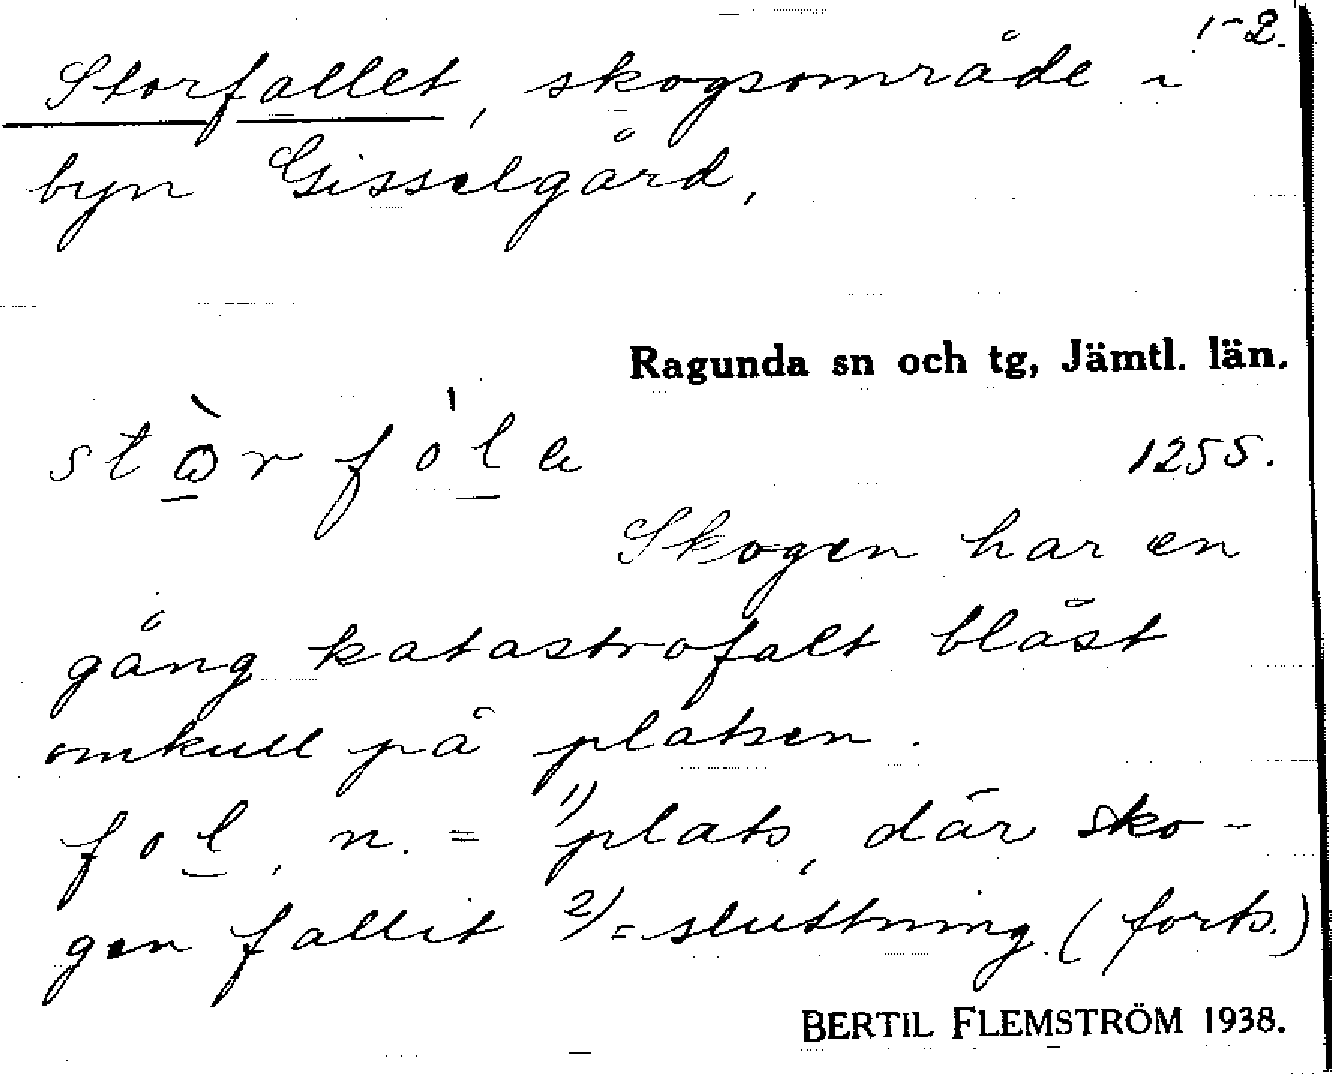 1-2.
Storfallet, skogsområde i
byn Gisselgård,
Ragunda sn och tg, Jämtl. län.
1255.
Skogen har en
gång katastrofalt blåst
omkull på platsen.
fol, n. = 1) plats, där sko-
gen fallit 2) = sluttning. (forts.)
BERTIL FLEMSTRÖM 1938.